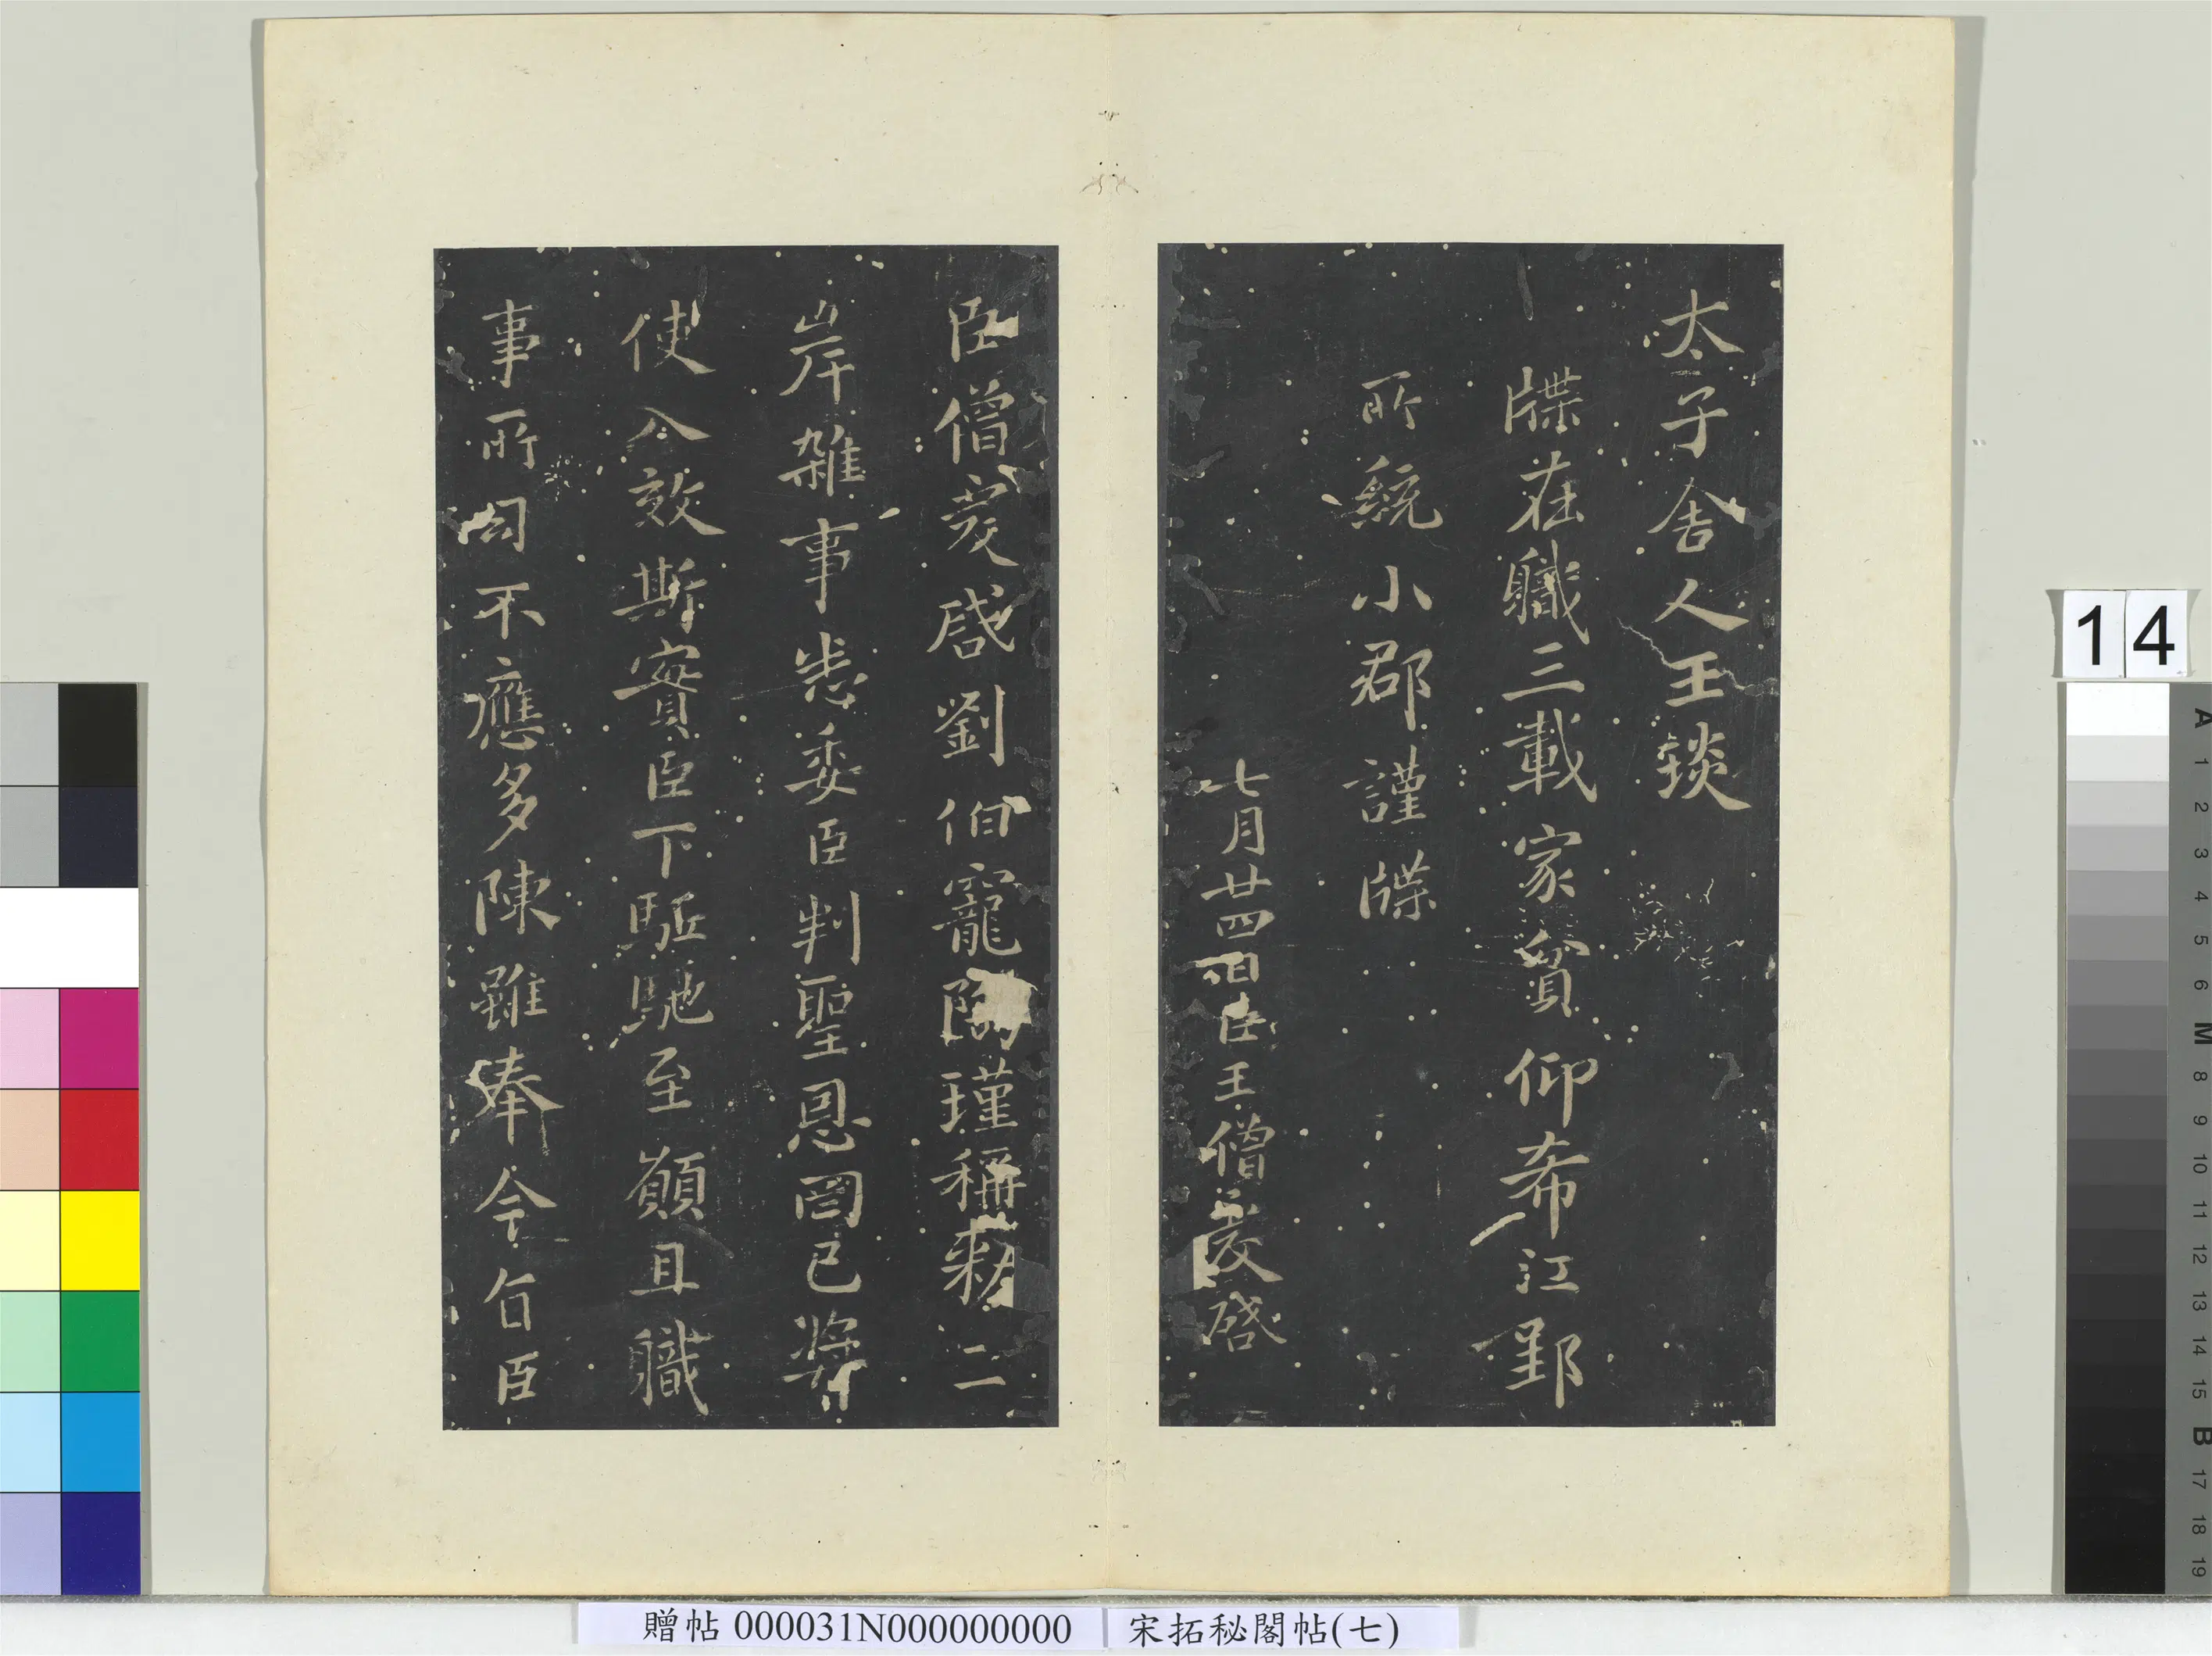 太子舍人王琰
牒在職三載家貧仰希江郢
所統小郡謹牒
七月廿四日臣王僧虔啓
臣僧虔啓劉伯寵陶瑾稱敕二
岸雜事悉委臣判聖恩罔已獎
使入效斯實臣下駈馳至願且職
事所司不應多陳雖奉令旨臣
贈帖 000031N000000000
宋拓秘閣帖(七)
14
A
1
2
3
4
5
6
M
8
9
10
11
12
13
14
15
B
17
18
19